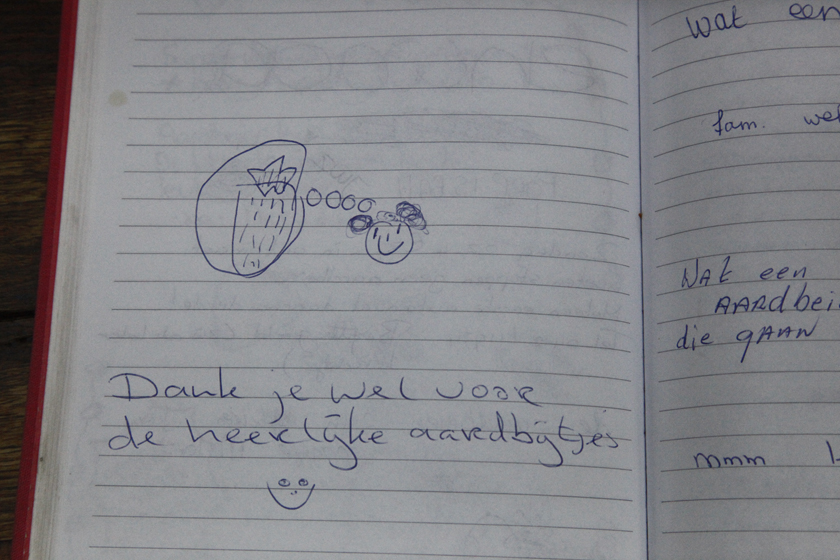 Dank je wel voor
de heerlijke aardbijtjes
wat een
fam. we
WAt een
AARdbei
die gAAN
mmm